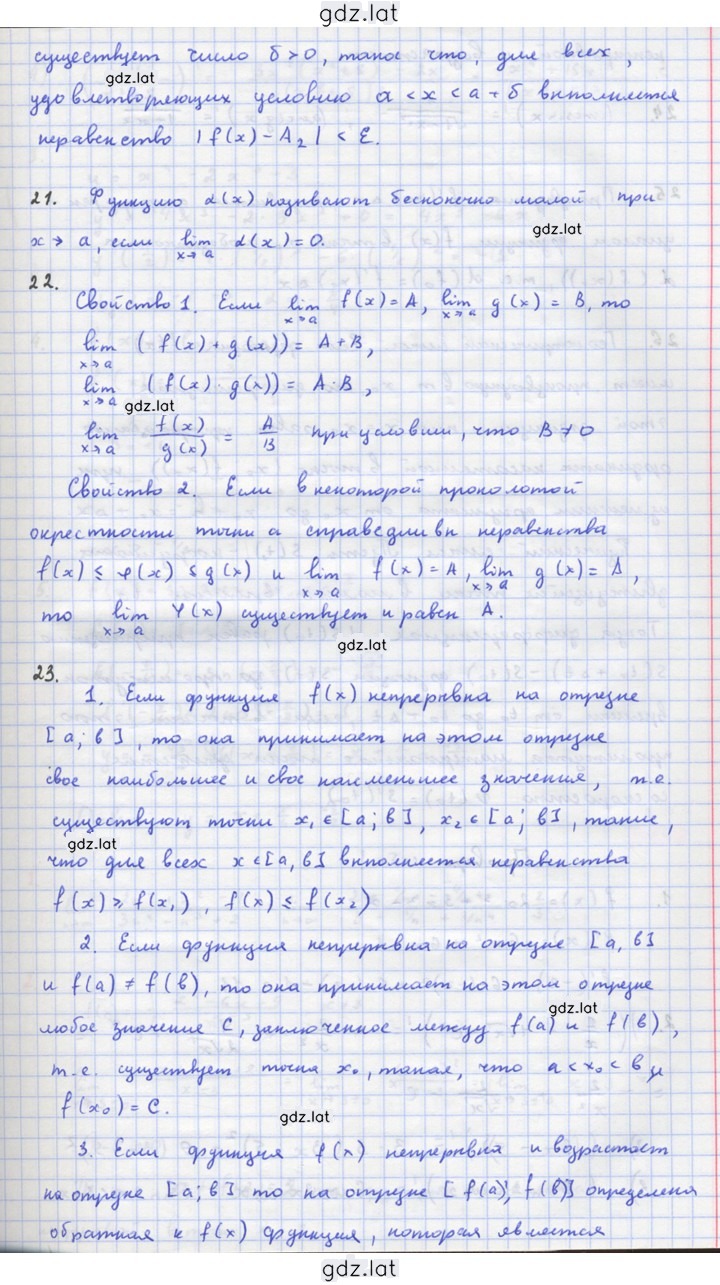 gdz.lat
существует число δ > 0, такое что, для всех,
gdz.lat
удовлетворяющих условию a < x < a + δ выполняется
неравенство |f(x) - A₂| < ε.
21. Функцию α(x) называют бесконечно малой при
gdz.lat
x → a, если lim x→a α(x) = 0.
22.
Свойство 1. Если lim x→a f(x) = A, lim x→a g(x) = B, то
lim x→a (f(x) + g(x)) = A + B,
lim x→a (f(x) · g(x)) = A · B,
gdz.lat
lim x→a f(x)/g(x) = A/B при условии, что B ≠ 0
Свойство 2. Если в некоторой проколотой
окрестности точки a справедливы неравенства
f(x) ≤ φ(x) ≤ g(x) и lim x→a f(x) = A, lim x→a g(x) = A,
то lim x→a φ(x) существует и равен A.
gdz.lat
23.
1. Если функция f(x) непрерывна на отрезке
[a; b], то она принимает на этом отрезке
свое наибольшее и свое наименьшее значения, т.е.
существуют точки x₁ ∈ [a; b], x₂ ∈ [a; b], такие,
gdz.lat
что для всех x ∈ [a, b] выполняется неравенства
f(x) ≥ f(x₁), f(x) ≤ f(x₂)
2. Если функция непрерывна на отрезке [a, b]
и f(a) ≠ f(b), то она принимает на этом отрезке
gdz.lat
любое значение C, заключенное между f(a) и f(b),
т.е. существует точка x₀, такая, что a < x₀ < b и
f(x₀) = C.
gdz.lat
3. Если функция f(x) непрерывна и возрастает
на отрезке [a; b] то на отрезке [f(a); f(b)] определена
обратная к f(x) функция, которая является
gdz.lat